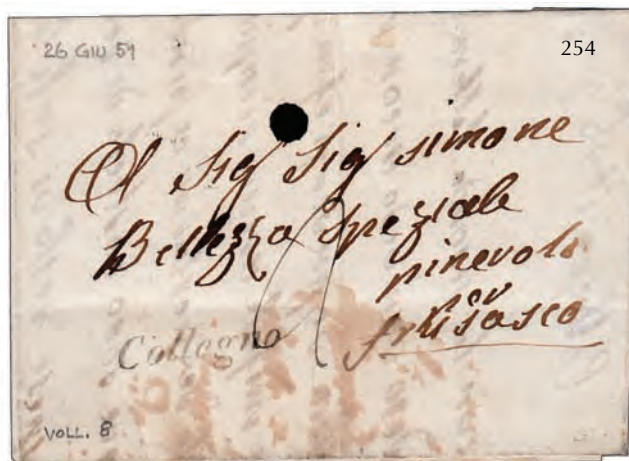 26 GIU 51
254
Al Sig Sig simone
Bellezza Speziale
pinerolo
per
frossasco
Collegno
VOLL. 8